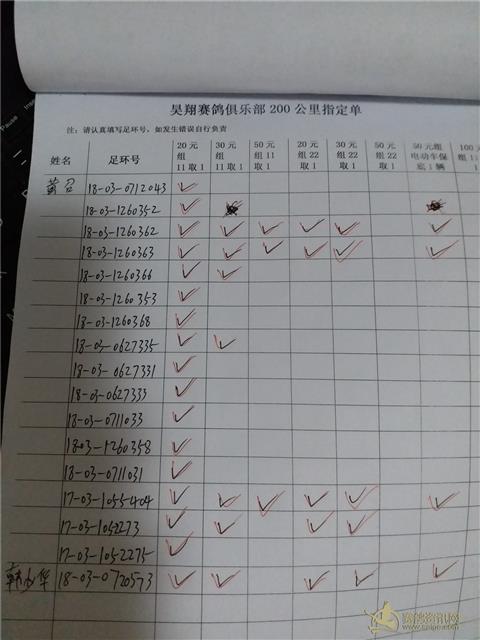 昊翔赛鸽俱乐部200公里指定单
注：请认真填写足环号，如发生错误自行负责
姓名 足环号 20元组11取1 30元组11取1 50元11取1 20元组22取1 30元组22取1 50元22取1 50元组电动车保底1辆 100元组11
18-03-0712043 ✓
18-03-1260352 ✓
18-03-1260362 ✓ ✓ ✓ ✓ ✓ ✓
18-03-1260363 ✓ ✓ ✓ ✓ ✓ ✓
18-03-1260366 ✓ ✓
18-03-1260353 ✓
18-03-1260368 ✓
18-03-0627335 ✓ ✓
18-03-0627331 ✓
18-03-0627333 ✓
18-03-0711033 ✓
18-03-1260358 ✓
18-03-0711031 ✓
17-03-1055404 ✓ ✓ ✓ ✓ ✓ ✓
17-03-1052273 ✓ ✓ ✓ ✓
17-03-1052275 ✓
18-03-0720573 ✓ ✓ ✓ ✓ ✓
赛鸽资讯网